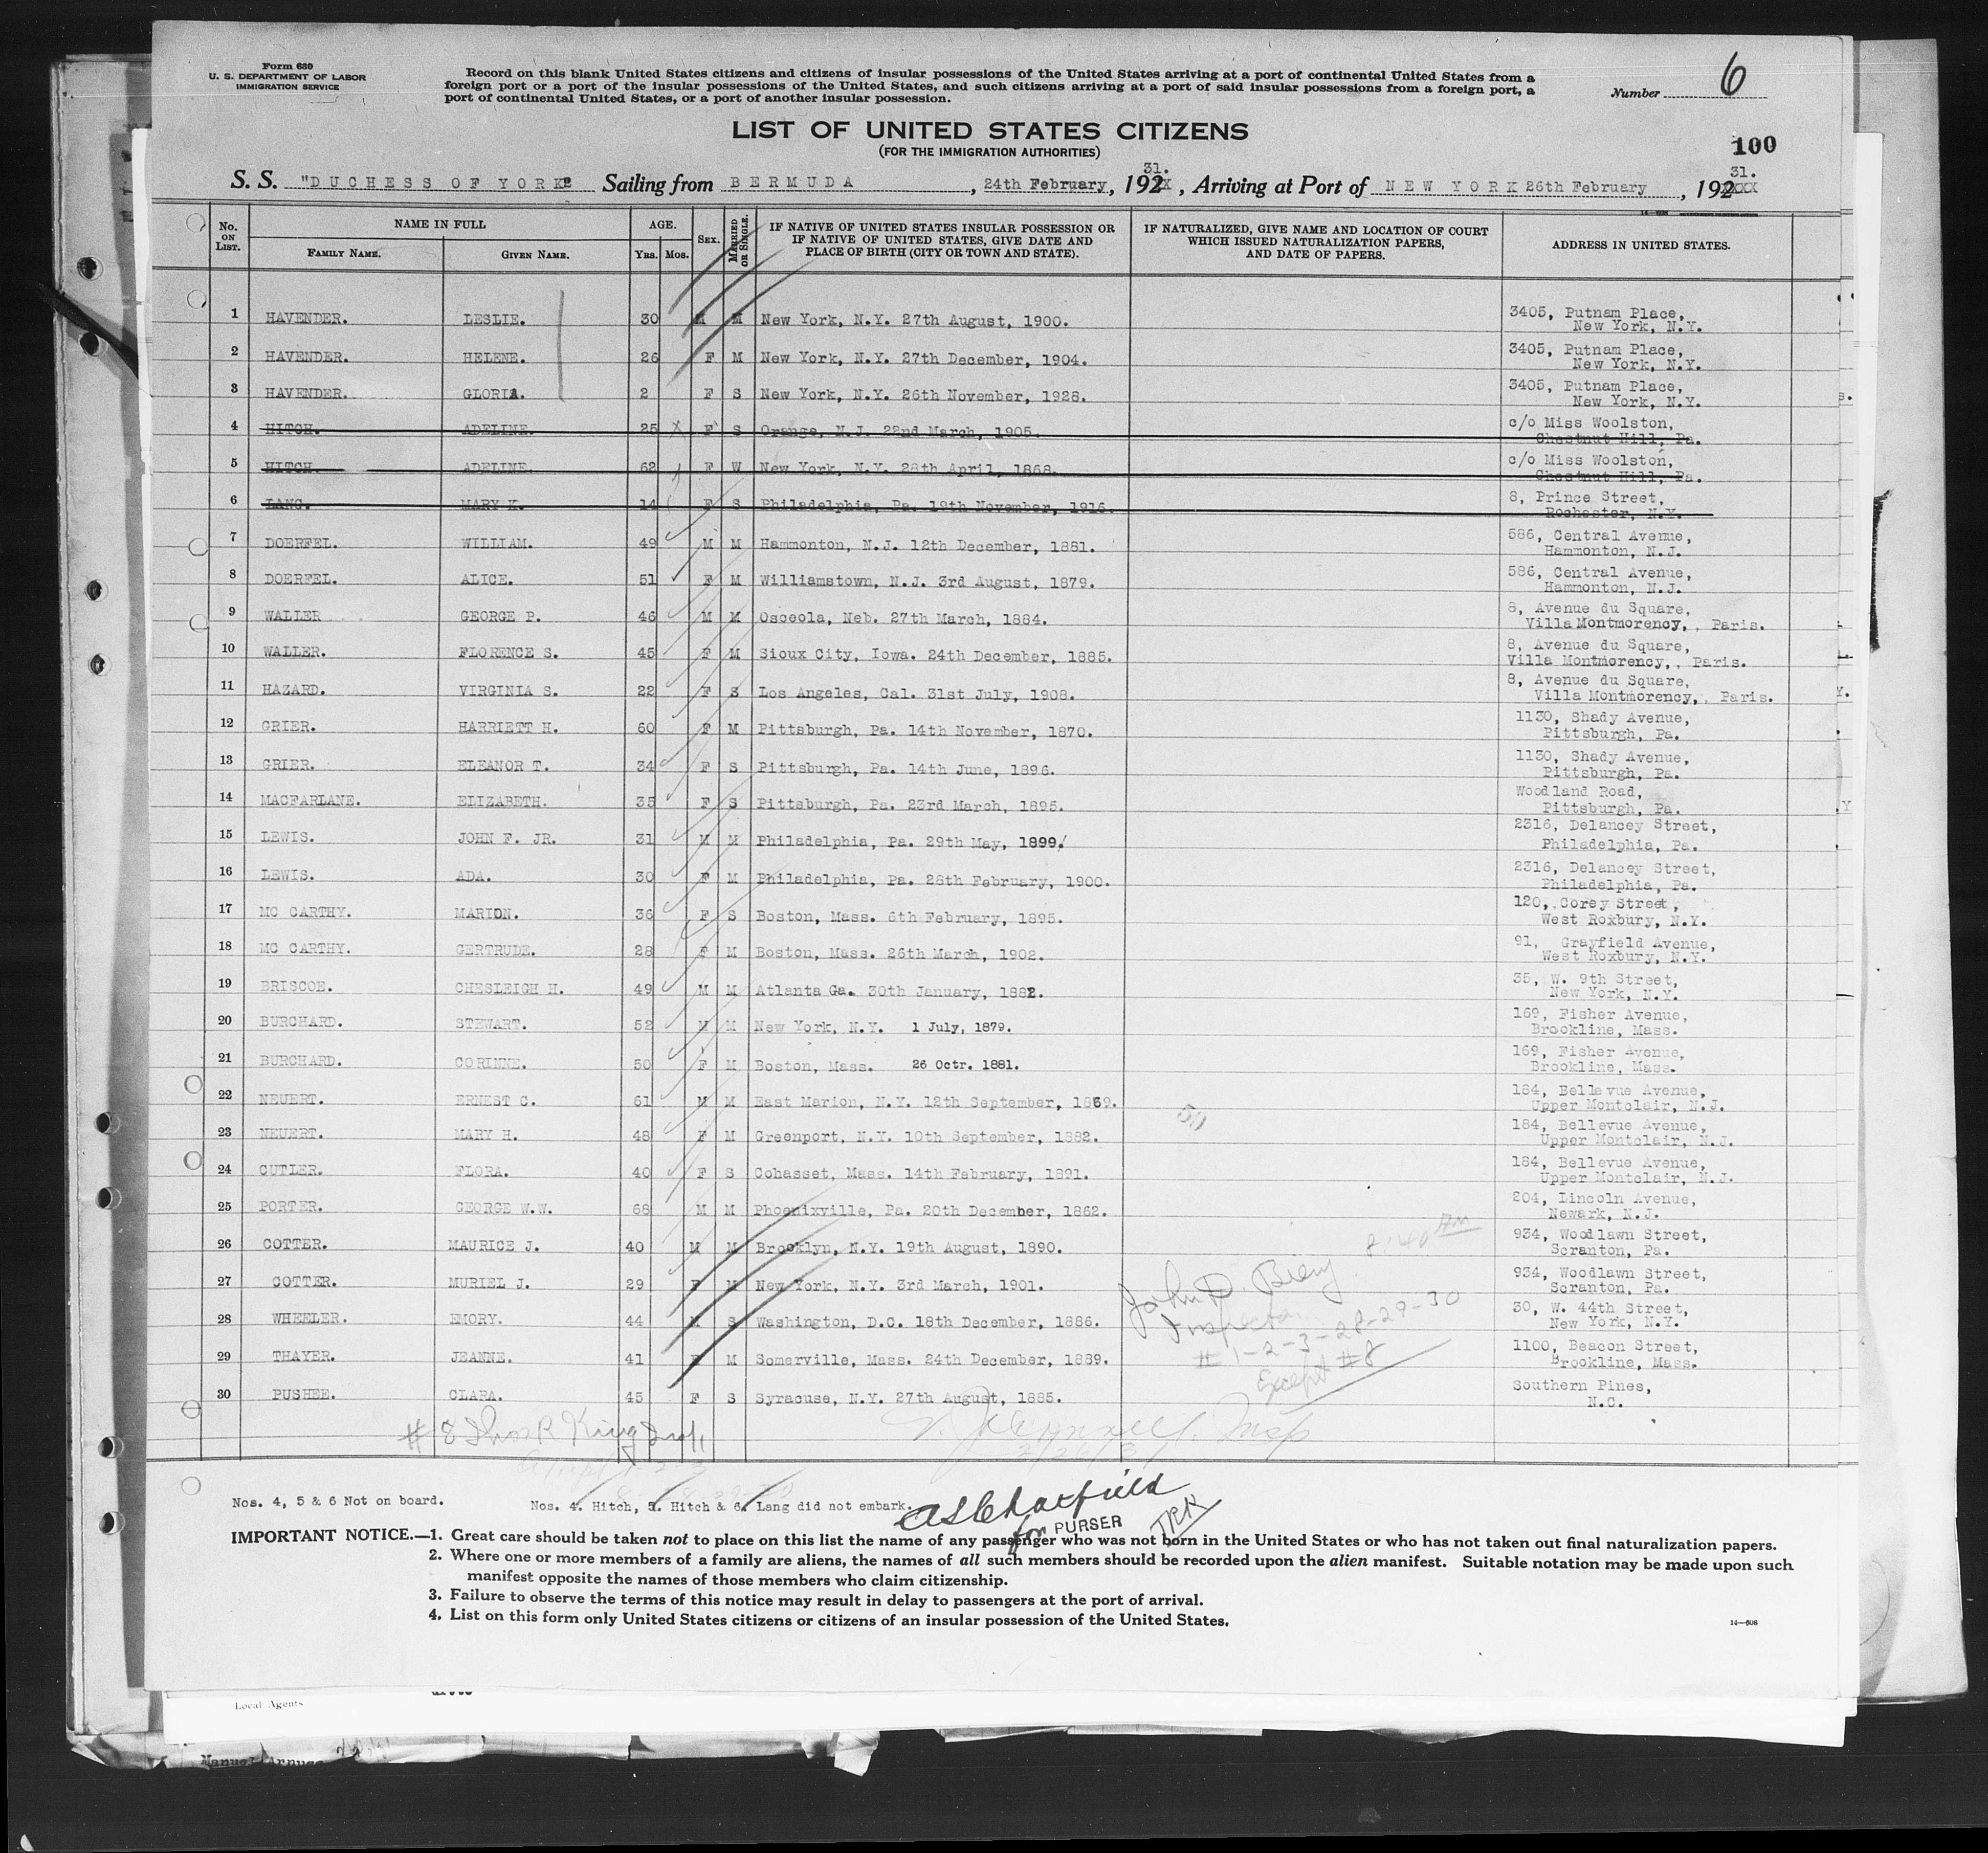 Form 630
U. S. DEPARTMENT OF LABOR
IMMIGRATION SERVICE
Record on this blank United States citizens and citizens of insular possessions of the United States arriving at a port of continental United States from a
foreign port or a port of the insular possessions of the United States, and such citizens arriving at a port of said insular possessions from a foreign port, a
port of continental United States, or a port of another insular possession.
Number 6
LIST OF UNITED STATES CITIZENS
(FOR THE IMMIGRATION AUTHORITIES)
100
S. S. "DUCHESS OF YORK" Sailing from BERMUDA, 24th February, 192 31., Arriving at Port of NEW YORK 26th February, 192 31.
No. ON LIST. NAME IN FULL FAMILY NAME. GIVEN NAME. AGE. YRS. MOS. SEX. MARRIED OR SINGLE. IF NATIVE OF UNITED STATES INSULAR POSSESSION OR IF NATIVE OF UNITED STATES, GIVE DATE AND PLACE OF BIRTH (CITY OR TOWN AND STATE). IF NATURALIZED, GIVE NAME AND LOCATION OF COURT WHICH ISSUED NATURALIZATION PAPERS, AND DATE OF PAPERS. ADDRESS IN UNITED STATES.
1 HAVENDER. LESLIE. 30 M M New York, N.Y. 27th August, 1900. 3405, Putnam Place, New York, N.Y.
2 HAVENDER. HELENE. 26 F M New York, N.Y. 27th December, 1904. 3405, Putnam Place, New York, N.Y.
3 HAVENDER. GLORIA. 2 F S New York, N.Y. 26th November, 1928. 3405, Putnam Place, New York, N.Y.
4 HITCH. ADELINE. 25 F S Orange, N.J. 22nd March, 1905. c/o Miss Woolston, Chestnut Hill, Pa.
5 HITCH. ADELINE. 62 F W New York, N.Y. 28th April, 1868. c/o Miss Woolston, Chestnut Hill, Pa.
6 LANG. MARY K. 14 F S Philadelphia, Pa. 19th November, 1916. 8, Prince Street, Rochester, N.Y.
7 DOERFEL. WILLIAM. 49 M M Hammonton, N.J. 12th December, 1881. 586, Central Avenue, Hammonton, N.J.
8 DOERFEL. ALICE. 51 F M Williamstown, N.J. 3rd August, 1879. 586, Central Avenue, Hammonton, N.J.
9 WALLER GEORGE P. 46 M M Osceola, Neb. 27th March, 1884. 8, Avenue du Square, Villa Montmorency,, Paris.
10 WALLER. FLORENCE S. 45 F M Sioux City, Iowa. 24th December, 1885. 8, Avenue du Square, Villa Montmorency,, Paris.
11 HAZARD. VIRGINIA S. 22 F S Los Angeles, Cal. 31st July, 1908. 8, Avenue du Square, Villa Montmorency,, Paris.
12 GRIER. HARRIETT H. 60 F M Pittsburgh, Pa. 14th November, 1870. 1130, Shady Avenue, Pittsburgh, Pa.
13 GRIER. ELEANOR T. 34 F S Pittsburgh, Pa. 14th June, 1896. 1130, Shady Avenue, Pittsburgh, Pa.
14 MACFARLANE. ELIZABETH. 35 F S Pittsburgh, Pa. 23rd March, 1895. Woodland Road, Pittsburgh, Pa.
15 LEWIS. JOHN F. JR. 31 M M Philadelphia, Pa. 29th May, 1899. 2316, Delancey Street, Philadelphia, Pa.
16 LEWIS. ADA. 30 F M Philadelphia, Pa. 28th February, 1900. 2316, Delancey Street, Philadelphia, Pa.
17 MC CARTHY. MARION. 36 F S Boston, Mass. 6th February, 1895. 120, Corey Street, West Roxbury, N.Y.
18 MC CARTHY. GERTRUDE. 28 F M Boston, Mass. 26th March, 1902. 91, Grayfield Avenue, West Roxbury, N.Y.
19 BRISCOE. CHESLEIGH H. 49 M M Atlanta Ga. 30th January, 1882. 35, W. 9th Street, New York, N.Y.
20 BURCHARD. STEWART. 52 M M New York, N.Y. 1 July, 1879. 169, Fisher Avenue, Brookline, Mass.
21 BURCHARD. CORINNE. 50 F M Boston, Mass. 26 Octr. 1881. 169, Fisher Avenue, Brookline, Mass.
22 NEUERT. ERNEST C. 61 M M East Marion, N.Y. 12th September, 1869. 184, Bellevue Avenue, Upper Montclair, N.J.
23 NEUERT. MARY H. 48 F M Greenport, N.Y. 10th September, 1882. 184, Bellevue Avenue, Upper Montclair, N.J.
24 CUTLER. FLORA. 40 F S Cohasset, Mass. 14th February, 1891. 184, Bellevue Avenue, Upper Montclair, N.J.
25 PORTER. GEORGE W.W. 68 M M Phoenixville, Pa. 20th December, 1862. 204, Lincoln Avenue, Newark, N.J.
26 COTTER. MAURICE J. 40 M M Brooklyn, N.Y. 19th August, 1890. 934, Woodlawn Street, Scranton, Pa.
27 COTTER. MURIEL J. 29 F M New York, N.Y. 3rd March, 1901. 934, Woodlawn Street, Scranton, Pa.
28 WHEELER. EMORY. 44 M S Washington, D.C. 18th December, 1886. 30, W. 44th Street, New York, N.Y.
29 THAYER. JEANNE. 41 F M Somerville, Mass. 24th December, 1889. 1100, Beacon Street, Brookline, Mass.
30 PUSHEE. CLARA. 45 F S Syracuse, N.Y. 27th August, 1885. Southern Pines, N.C.
8:40 AM
John D.
Inspector
#1-2-3-28-29-30
Except #8
# 8 King
Insp
2/26/31
Nos. 4, 5 & 6 Not on board.
Nos. 4. Hitch, 5. Hitch & 6. Lang did not embark.
for PURSER
IMPORTANT NOTICE.—1. Great care should be taken not to place on this list the name of any passenger who was not born in the United States or who has not taken out final naturalization papers.
2. Where one or more members of a family are aliens, the names of all such members should be recorded upon the alien manifest. Suitable notation may be made upon such
manifest opposite the names of those members who claim citizenship.
3. Failure to observe the terms of this notice may result in delay to passengers at the port of arrival.
4. List on this form only United States citizens or citizens of an insular possession of the United States.
14—608
Local Agents